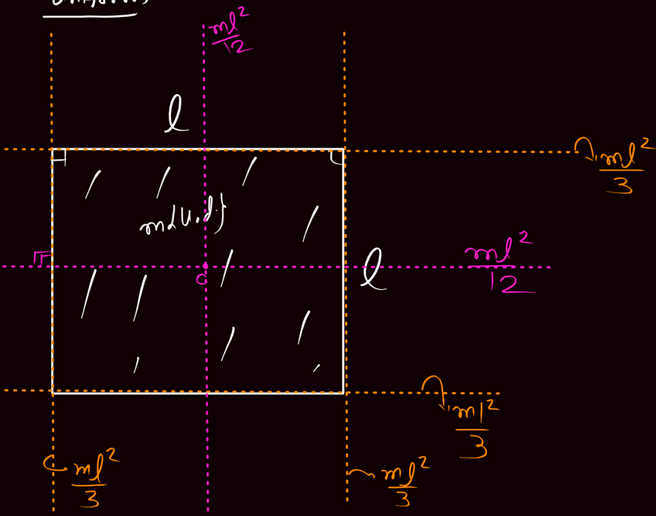 ml²/12
l
ml²/3
m{u.d}
ml²/12
c
l
ml²/3
ml²/3
ml²/3